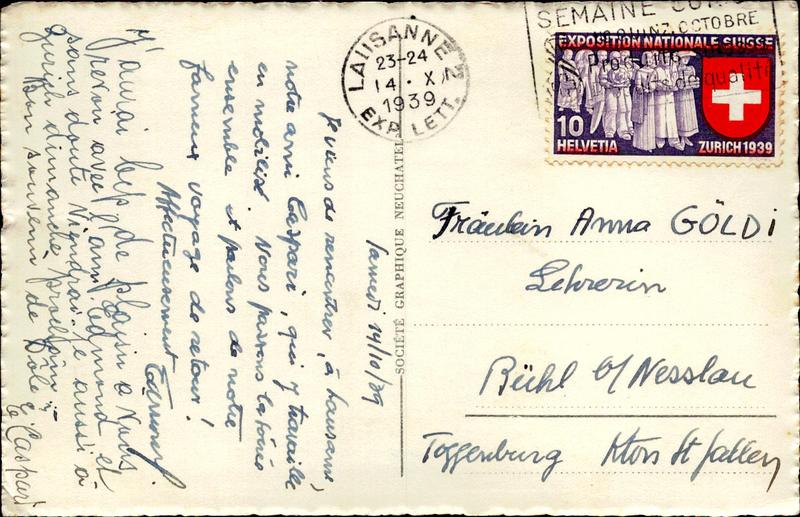 samedi 14/10/39
Je viens de rencontrer, à Lausanne,
notre ami Caspari, qui y travaille
en mobilisé. Nous passons la soirée
ensemble et parlons de notre
fameux voyage de retour!
Affectueusement
J'aurai bcp de plaisir à vous
revoir avec l'ami Edmond et
sans doute viendrai-je aussi à
Zurich dimanche prochain.
Bon souvenir de
E. Caspari
SOCIÉTÉ GRAPHIQUE NEUCHATEL
LAUSANNE
23-24
14.X.
1939
EXP. LETT.
SEMAINE
OCTOBRE
de qualité
EXPOSITION NATIONALE SUISSE
10
HELVETIA
ZURICH 1939
Fräulein Anna GÖLDI
Lehrerin
Bühl b/Nesslau
Toggenburg Kton St Gallen